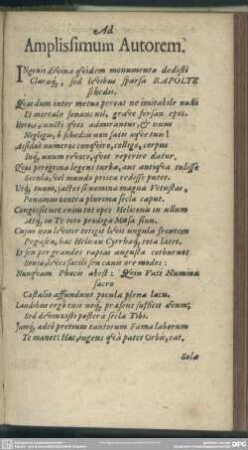 Ad
Amplissimum Autorem.
INgenii divina quidem monumenta dedisti
Claraq;, sed levibus sparsa RAPOLTE
schedis.
Quas dum inter metus pereat ne imitabile nulli
Et mortale sonans nil, grave forsan opus.
cuncti quae admirantur, & num
Negligis, ô schedia non satis aeque tua!
Assiduè numeros conquiro, colligo, corpus
Inq, unum revoco, quot reperire datur.
Quae peregrina legens turba, aut antiqua tulisse
Secula, vel mundo prisca redisse putet.
Utq, tuum, jactes si nomina magna Vetustas,
Ponamus contra plurima secla caput.
Congessit nec enim tot opes Heliconis in ullum
Atq, in Te toto prodiga Musa sinu.
Cujus non leviter tetigit levis ungula fontem
Pegasea, hac Helicon Cyrrhaq, tota latet.
Et seu per grandes rapias augusta cothurnos
Seria, leves facili seu canis ore modos:
Nunquam Phoebus abest: Quin Vati Numina
sacro
Castalio affundunt pocula plena lacu.
Laudibus ergo tuis neq, praesens sufficit aevum;
Sed devinxisti postera secla Tibi.
Jamq, adeò pretium tantorum Fama laborum
Te manet: Hac, ingens quâ patet Orbis, eat.
Sola